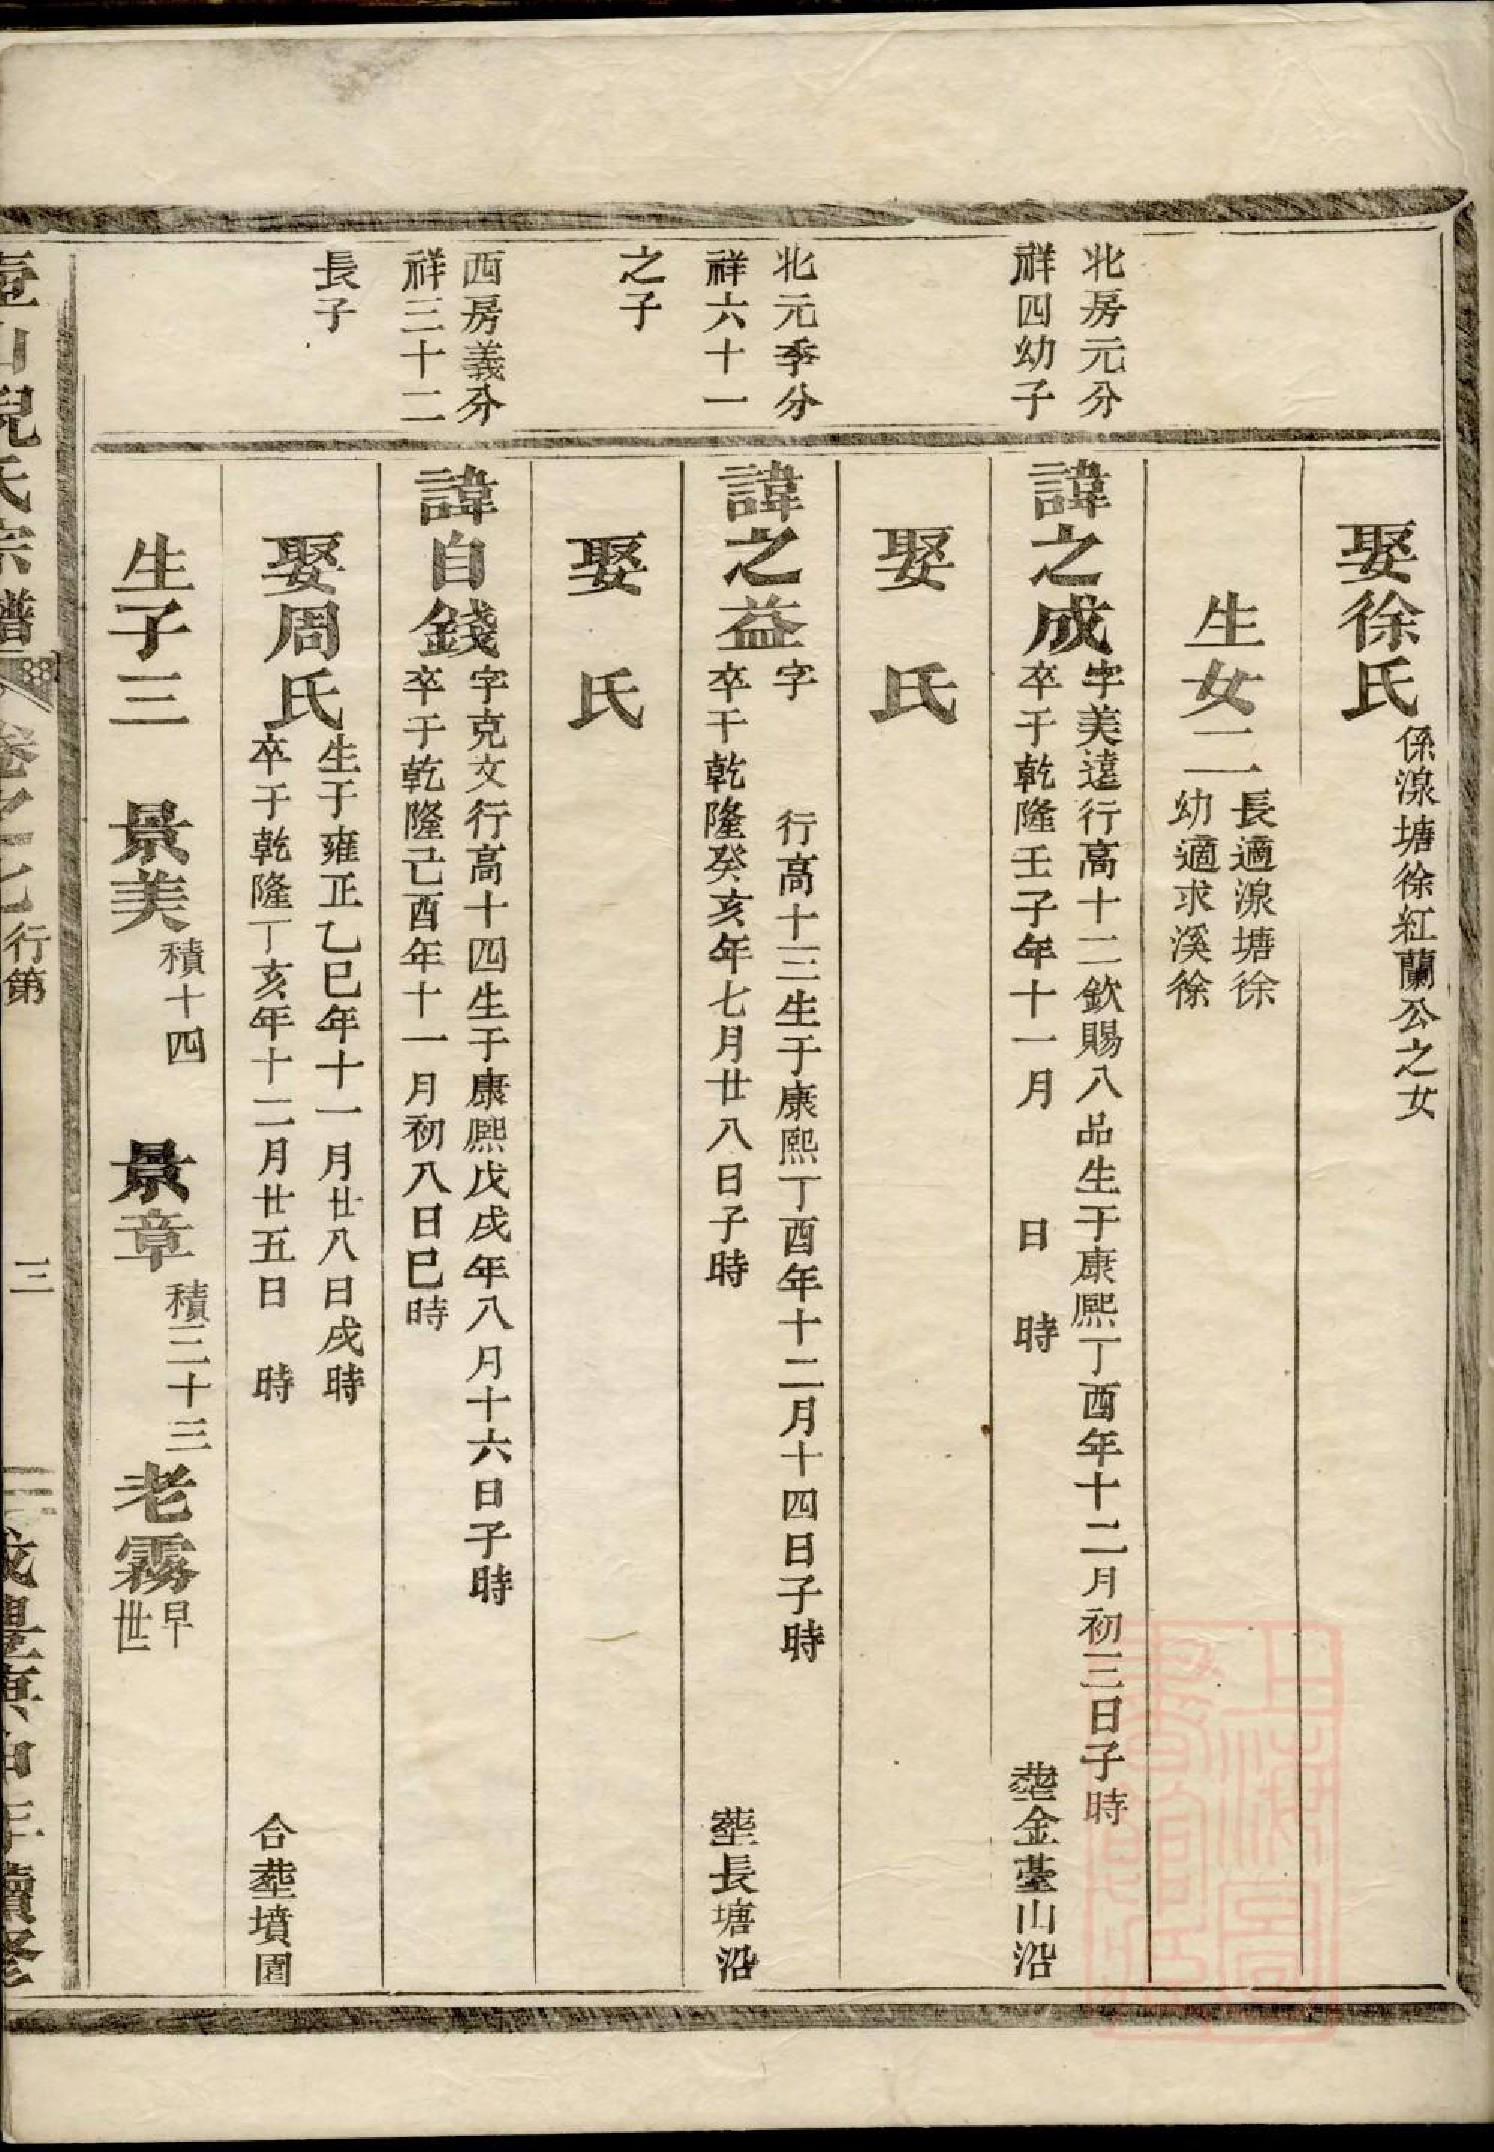 娶徐氏
係湶塘徐紅蘭公之女
生女二
長適湶塘徐
幼適求溪徐
北房元分
祥四幼子
諱之成
字美遠行高十二欽賜八品生于康熙丁酉年十二月初三日子時
卒于乾隆壬子年十一月 日 時 塟金蔓山沿
娶 氏
北元季分
祥六十一
之子
諱之益
字 行高十三生于康熙丁酉年十二月十四日子時
卒于乾隆癸亥年七月廿八日子時 塟長塘沿
娶 氏
西房義分
祥三十二
長子
諱自錢
字克文行高十四生于康熙戊戌年八月十六日子時
卒于乾隆己酉年十一月初八日巳時
娶周氏
生于雍正乙巳年十一月廿八日戌時
卒于乾隆丁亥年十二月廿五日 時 合塟墳園
生子三 景美 積十四 景章 積三十三 老霧 早世
壺山倪氏宗譜 卷之七 行第 三 咸豐庚申年續修
上海圖書館藏